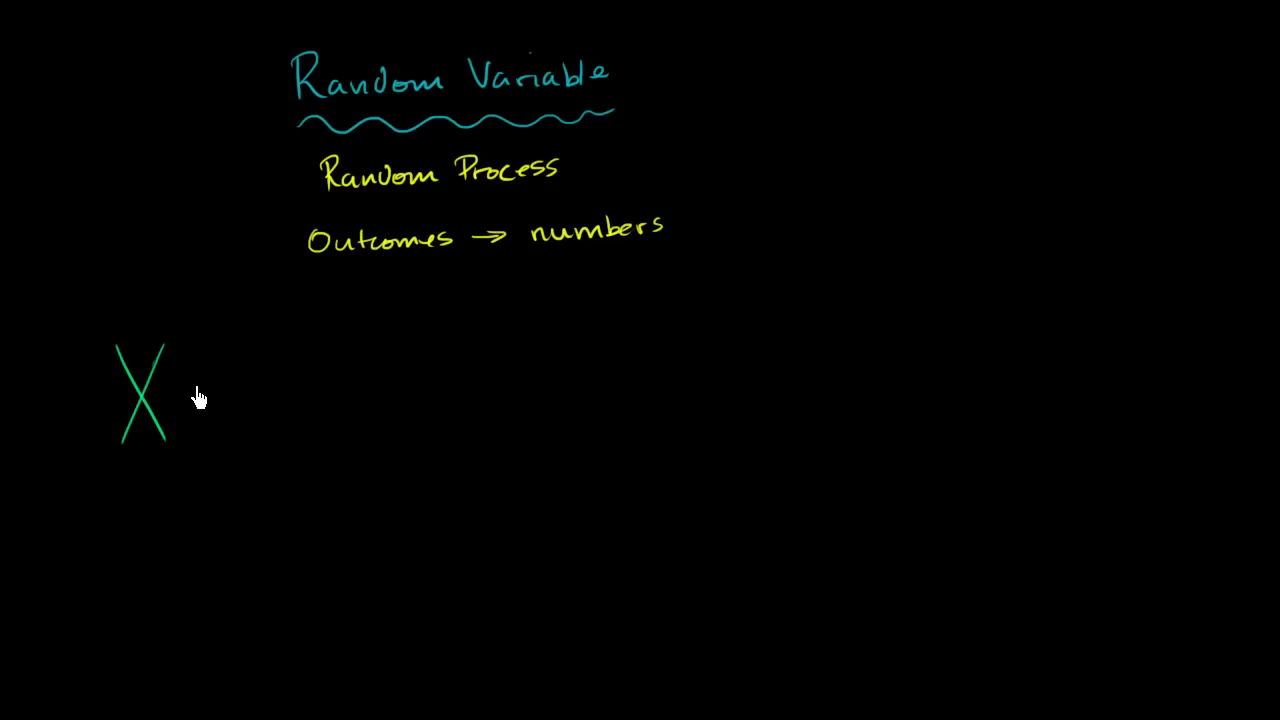 Random Variable
Random Process
Outcomes → numbers
X